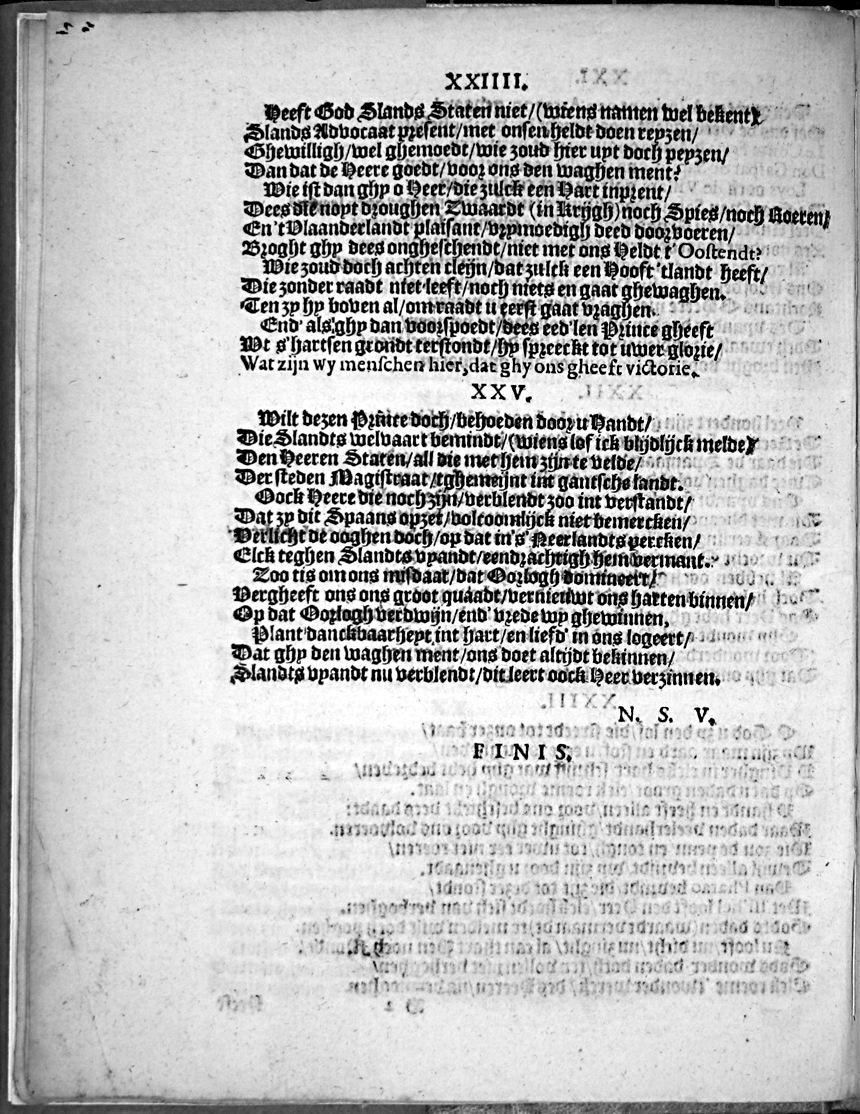 XXIIII.
Heeft God Slands Staten niet/(wiens namen wel bekent)
Slands Advocaat present/met onsen heldt doen reyzen/
Ghewilligh/wel ghemoedt/wie zoud hier uyt doch peyzen/
Dan dat de Heere goedt/voor ons den waghen ment?
Wie ist dan ghy o Heer/die zulck een Hart inprent/
Dees die noyt droughen Zwaardt (in Krijgh)noch Spies/noch Roeren/
En't Vlaanderlandt plaisant/vrymoedigh deed doorvoeren/
Broght ghy dees ongheschendt/niet met ons Heldt t'Oostendt?
Wie zoud doch achten cleijn/dat zulck een Hooft 'tlandt heeft/
Die zonder raadt niet leeft/noch niets en gaat ghewaghen.
Ten zy hy boven al/om raadt u eerst gaat vraghen.
End' als ghy dan voorspoedt/dees eed'len Prince gheeft
Wt s'hartsen grondt terstondt/hy spreeckt tot uwer glorie/
Wat zijn wy menschen hier, dat ghy ons gheeft victorie.
XXV.
Wilt dezen Prince doch/behoeden door u Handt/
Die Slandts welvaart bemindt/(wiens lof ick blijdlijck melde)
Den Heeren Staten/all die met hem zijn te velde/
Der steden Magistraat/tghemeijnt int gantsche landt.
Oock Heere die noch zijn/verblendt zoo int verstandt/
Dat zy dit Spaans opzet/volcoomlijck niet bemercken/
Verlicht de ooghen doch/op dat in's Neerlandts percken/
Elck teghen Slandts vyandt/eendrachtigh hem vermant.
Zoo tis om ons misdaat/dat Oorlogh domineert/
Vergheeft ons ons groot quaadt/vernieuwt ons harten binnen/
Op dat Oorlogh verdwijn/end' vrede wy ghewinnen,
Plant danckbaarheyt int hart/en liefd' in ons logeert/
Dat ghy den waghen ment/ons doet altijdt bekinnen/
Slandts vyandt nu verblendt/dit leert oock Heer verzinnen.
N. S. V.
FINIS.